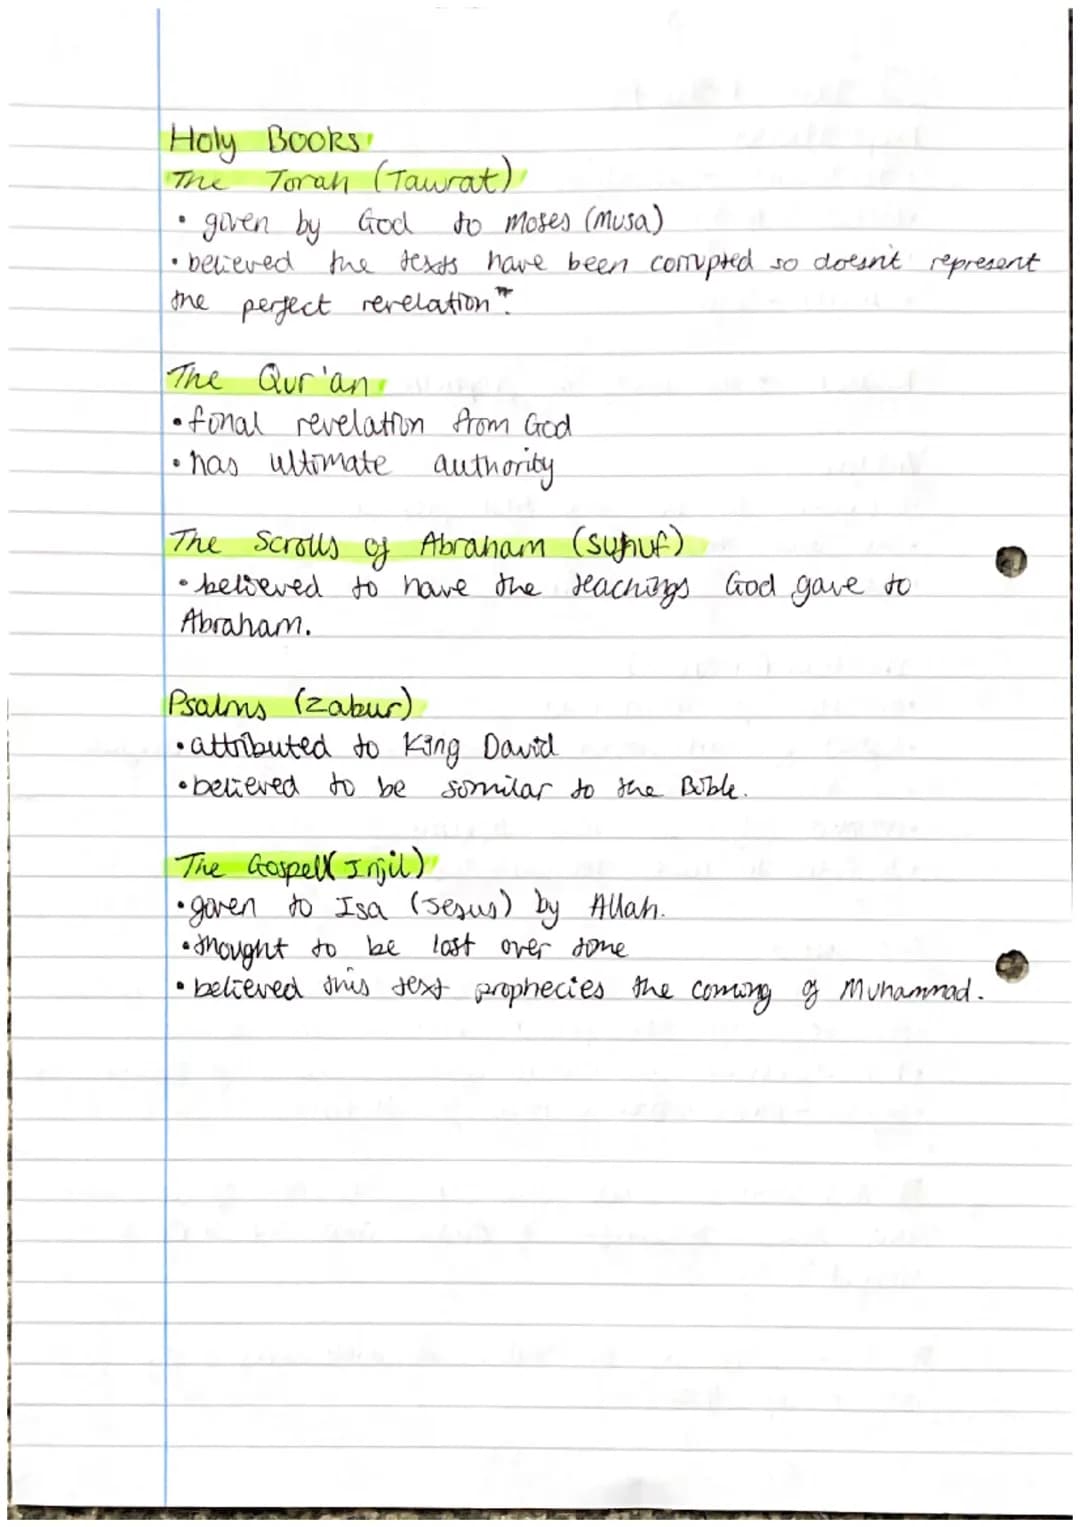 Holy Books
The Torah (Tawrat)
• given by God to Moses (Musa)
• believed the texts have been corrupted so doesn't represent
the perfect revelation".
The Qur'an
• final revelation from God
• has ultimate authority
The Scrolls of Abraham (Suhuf)
• believed to have the teachings God gave to
Abraham.
Psalms (Zabur)
• attributed to King David
• believed to be similar to the Bible.
The Gospell (Injil)
• given to Isa (Jesus) by Allah.
• thought to be lost over time
• believed this text prophecies the coming of Muhammad.